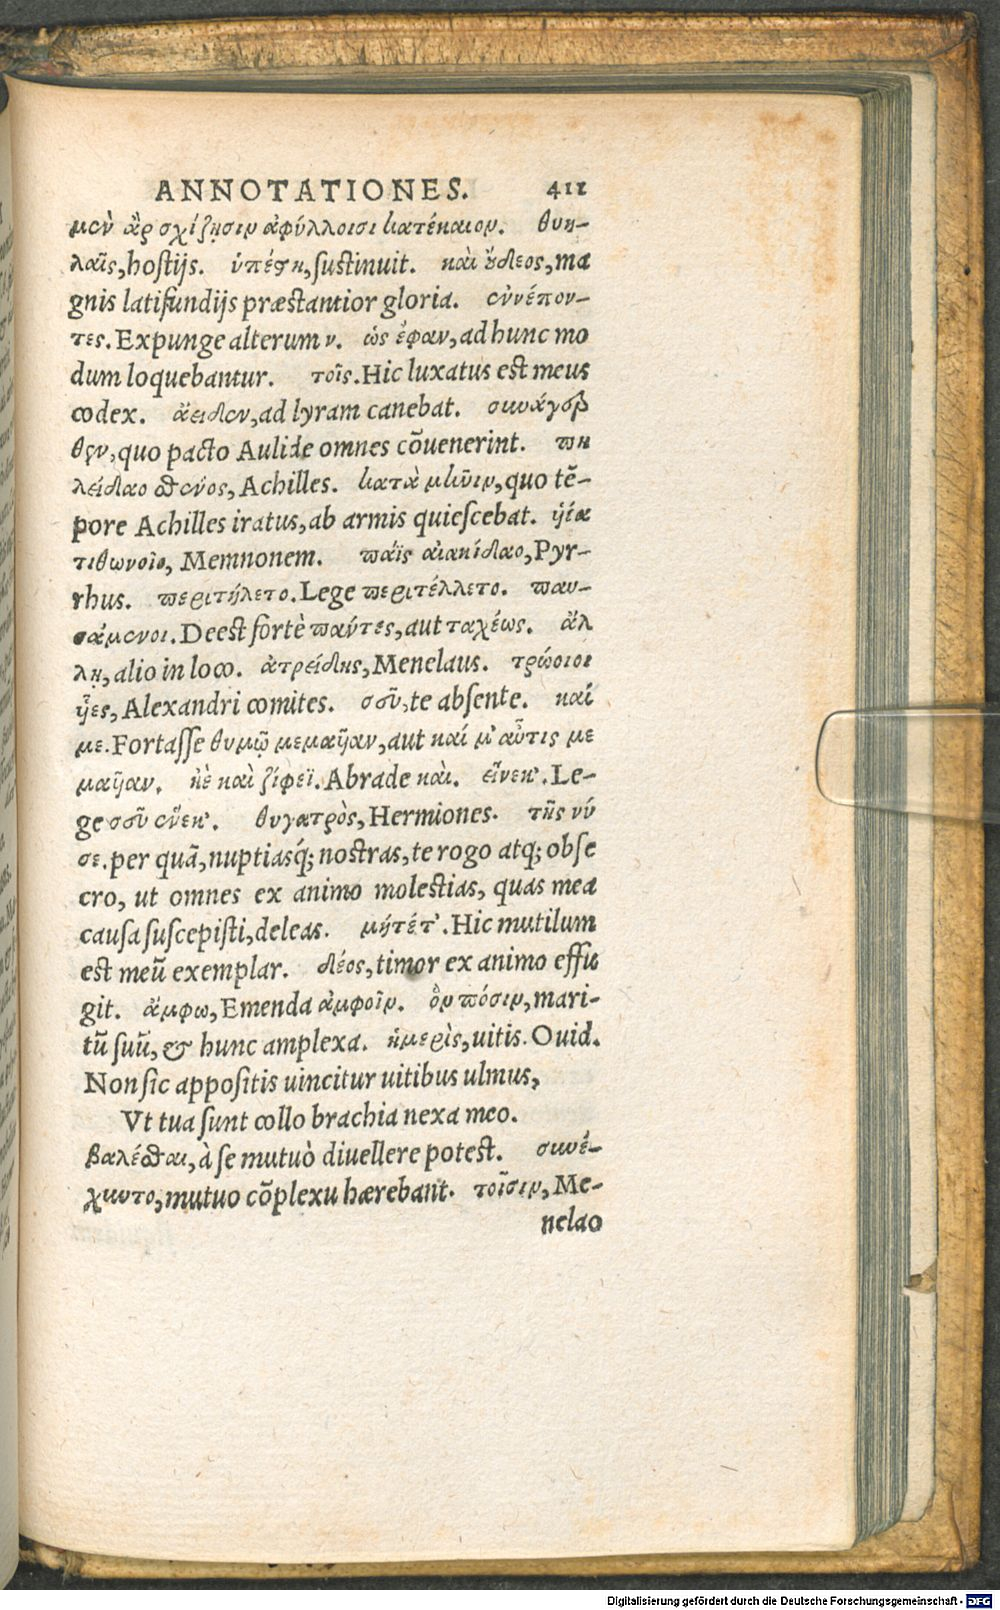 ANNOTATIONES. 411
μὲν ἂρ σχίζῃσιν ἀφύλλοισι κατέκαιον. θυη-
λαῖς, hostijs. ὑπέστη, sustinuit. καὶ οὔδεος, ma
gnis latifundijs præstantior gloria. σὺνέπον-
τες. Expunge alterum ν. ὡς ἔφαν, ad hunc mo
dum loquebantur. τοῖς. Hic luxatus est meus
codex. ἄειδεν, ad lyram canebat. συνάγερ
θεν, quo pacto Aulide omnes cōuenerint. πη
λείδαο σθένος, Achilles. κατὰ μῆνιν, quo tē-
pore Achilles iratus, ab armis quiescebat. ᾑία
τιθωνοῖο, Memnonem. παῖς αἰακίδαο, Pyr-
rhus. περιτήλετο. Lege περιτέλλετο. παυ-
σάμενοι. Deest fortè πάντες, aut ταχέως. ἄλ
λῃ, alio in loco. ἀτρείδης, Menelaus. τρώοιοι
ᾗες, Alexandri comites. σοῦ, te absente. καί
με. Fortasse θυμῷ μεμαῆαν, aut καί μ' αὖτις με
μαῆαν. κὲ καὶ ξίφεϊ. Abrade καὶ. εἵνεκ'. Le-
ge σοῦ εἵνεκ'. θυγατρὸς, Hermiones. τῆς νύ
σε. per quā, nuptiasq́; nostras, te rogo atq; obse
cro, ut omnes ex animo molestias, quas mea
causa suscepisti, deleas. μήτέτ'. Hic mutilum
est meū exemplar. δέος, timor ex animo effu
git. ἄμφω, Emenda ἀμφοῖν. ὃν πόσιν, mari-
tū suū, & hunc amplexa. ἡμερὶς, uitis. Ouid.
Non sic appositis uincitur uitibus ulmus,
Vt tua sunt collo brachia nexa meo.
βαλέσθαι, à se mutuò diuellere potest. συνέ-
χυντο, mutuo cōplexu hærebant. τοῖσιν, Me-
nelao
Digitalisierung gefördert durch die Deutsche Forschungsgemeinschaft - DFG